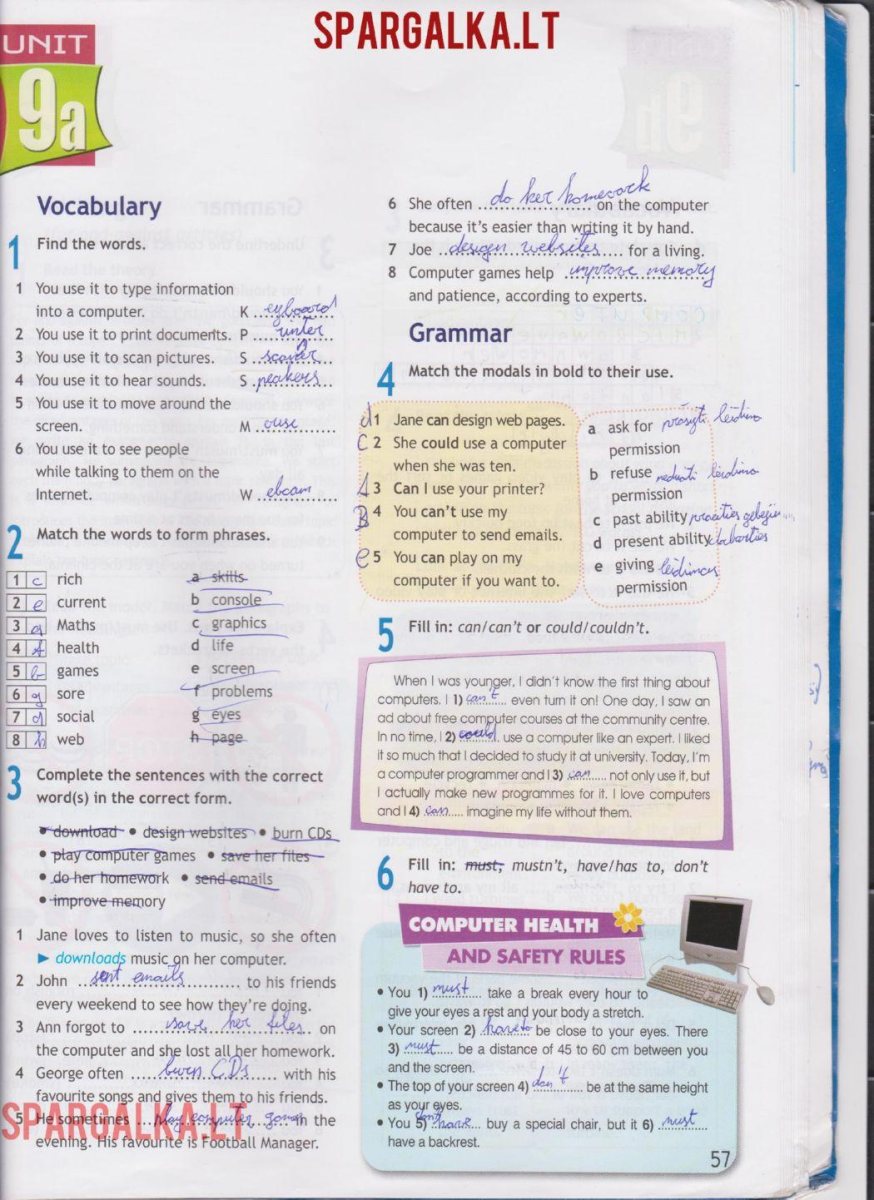 SPARGALKA.LT
UNIT
9a
Vocabulary
1 Find the words.
1 You use it to type information
into a computer. K eyboard
2 You use it to print documents. P rinter
3 You use it to scan pictures. S scaner
4 You use it to hear sounds. S peakers
5 You use it to move around the
screen. M ouse
6 You use it to see people
while talking to them on the
Internet. W ebcam
2 Match the words to form phrases.
1 c rich a skills
2 e current b console
3 a Maths c graphics
4 f health d life
5 b games e screen
6 g sore f problems
7 d social g eyes
8 h web h page
3 Complete the sentences with the correct
word(s) in the correct form.
• download • design websites • burn CDs
• play computer games • save her files
• do her homework • send emails
• improve memory
1 Jane loves to listen to music, so she often
► downloads music on her computer.
2 John sent emails to his friends
every weekend to see how they're doing.
3 Ann forgot to save her files on
the computer and she lost all her homework.
4 George often burn CDs with his
favourite songs and gives them to his friends.
5 He sometimes play computer games in the
evening. His favourite is Football Manager.
SPARGALKA.LT
6 She often do her homework on the computer
because it's easier than writing it by hand.
7 Joe design websites for a living.
8 Computer games help improve memory
and patience, according to experts.
Grammar
4 Match the modals in bold to their use.
d 1 Jane can design web pages.
C 2 She could use a computer
when she was ten.
A 3 Can I use your printer?
B 4 You can't use my
computer to send emails.
e 5 You can play on my
computer if you want to.
a ask for prašyti leidimo
permission
b refuse leidimo
permission
c past ability praeities
d present ability
e giving leidimas
permission
5 Fill in: can/can't or could/couldn't.
When I was younger, I didn't know the first thing about
computers. I 1) can't even turn it on! One day, I saw an
ad about free computer courses at the community centre.
In no time, I 2) could use a computer like an expert. I liked
it so much that I decided to study it at university. Today, I'm
a computer programmer and I 3) can not only use it, but
I actually make new programmes for it. I love computers
and I 4) can imagine my life without them.
6 Fill in: must, mustn't, have/has to, don't
have to.
COMPUTER HEALTH
AND SAFETY RULES
• You 1) must take a break every hour to
give your eyes a rest and your body a stretch.
• Your screen 2) have to be close to your eyes. There
3) must be a distance of 45 to 60 cm between you
and the screen.
• The top of your screen 4) don't be at the same height
as your eyes.
• You 5) don't have buy a special chair, but it 6) must
have a backrest.
57